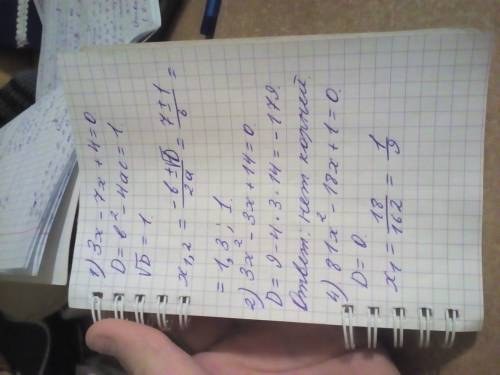 1) 3x - 7x + 4 = 0
D = b² - 4ac = 1
√D = 1
x₁,₂ = (-b ± √D)/2a = (7 ± 1)/6 =
= 1,3 ; 1.
2) 3x² - 3x + 14 = 0.
D = 9 - 4 · 3 · 14 = -179.
Ответ: нет корней
4) 81x² - 18x + 1 = 0.
D = 0.
x₁ = 18/162 = 1/9